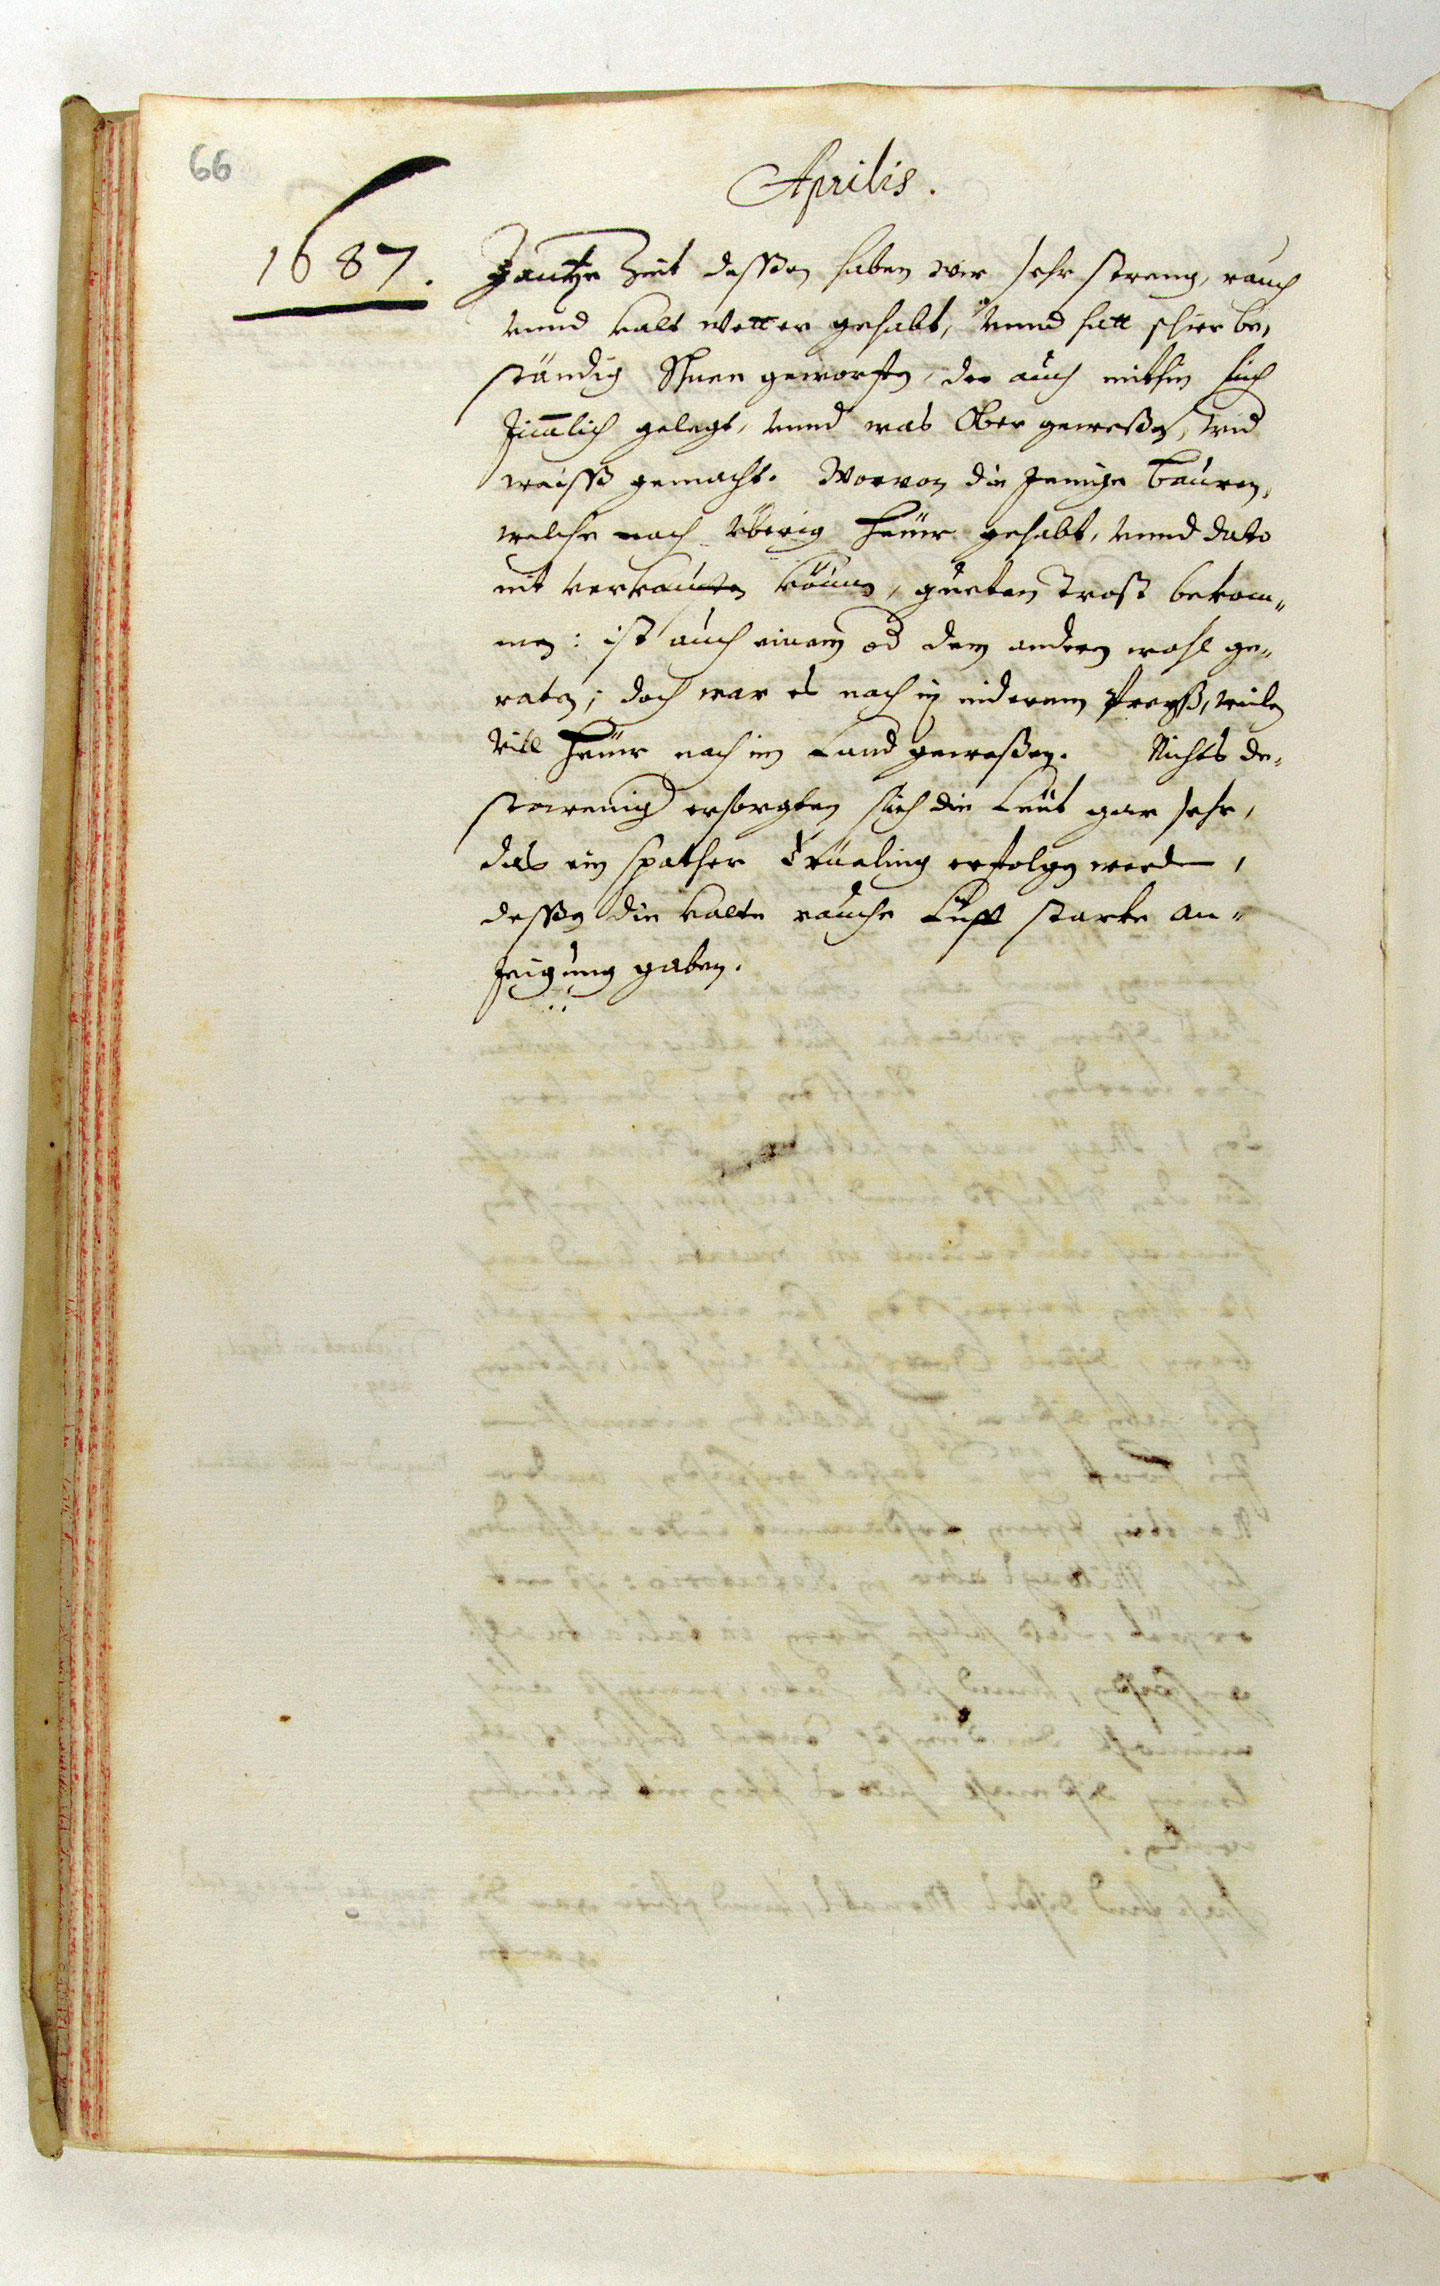 66
Aprilis.
1687.
gantze Zeit dessen haben wir sehr streng, rauch
vnnd kalt wetter gehabt, vnnd hatt schier be-
ständig Schnee geworffen, der auch mithin sich
zimlich gelegt, vnnd was Ober gewesen, wid
weiß gemacht. Worvon die jenige Bauren,
welche noch übrig Heüw gehabt, vnnd dato
nit verkauffen können, gueten Trost bekom-
men: ist auch einem od dem anderen wohl ge-
raten; doch war es noch in niderem Preyß, weilen
vill Heüw noch im Land gewesen. Nichts de-
stowenig ersorgten sich die Leüt gar sehr,
das ein spather Früeling erfolgen werde,
dessen die kalte rauche Lufft starke an-
zeigung gaben.